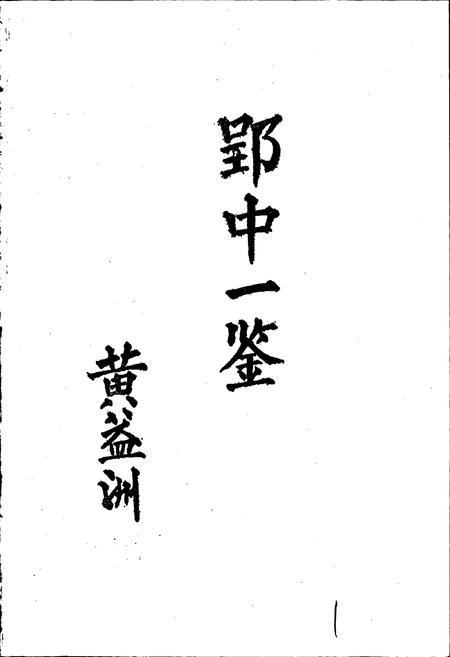 郢中一鉴
黄益洲